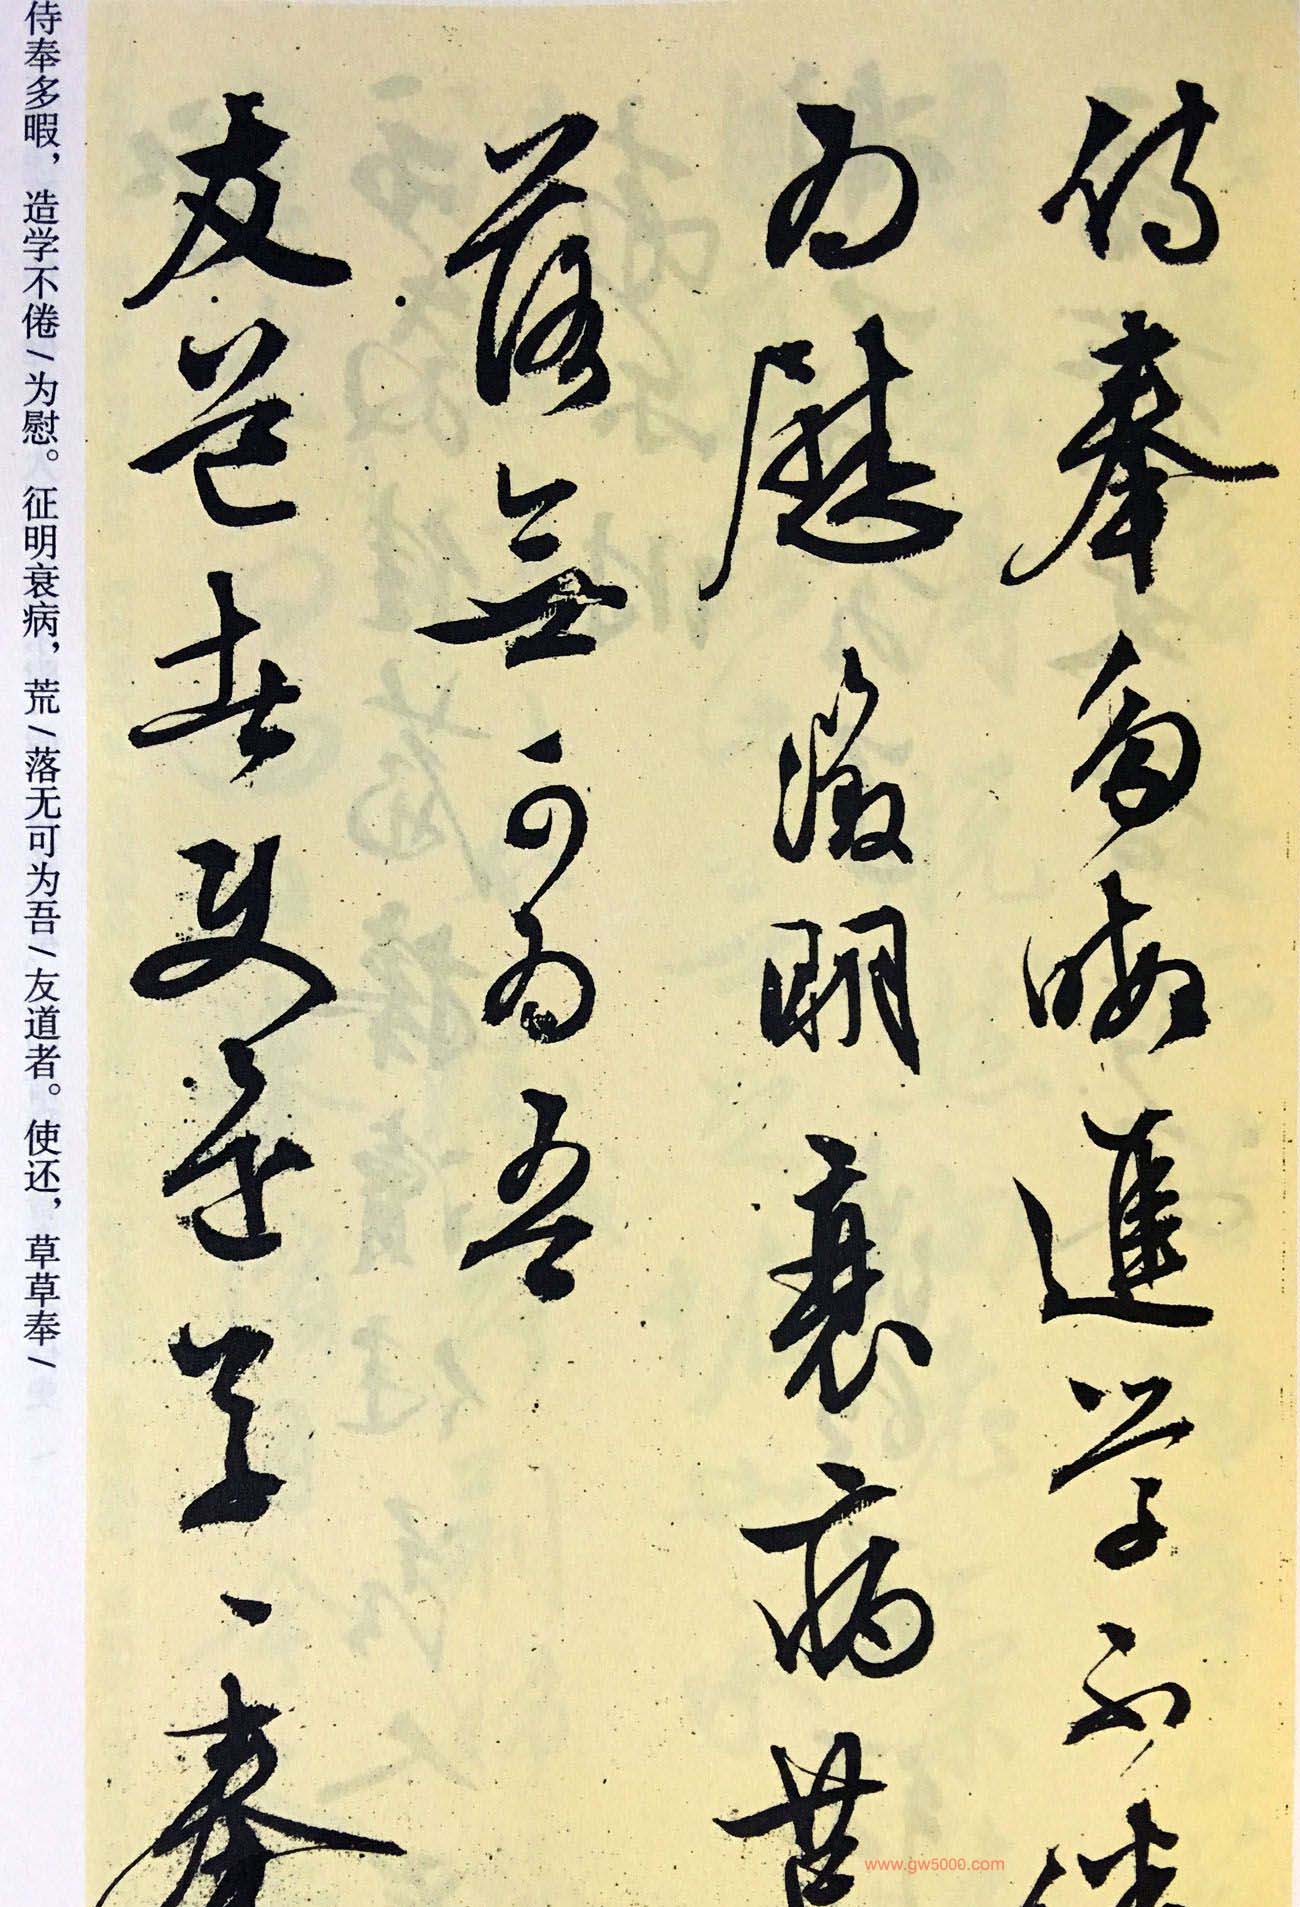 侍奉多暇進学不倦
為慰徵明衰病荒
落無可為吾
友道者使還草〻奉
侍奉多暇，造学不倦/为慰。征明衰病，荒/落无可为吾/友道者。使还，草草奉/
www.gw5000.com